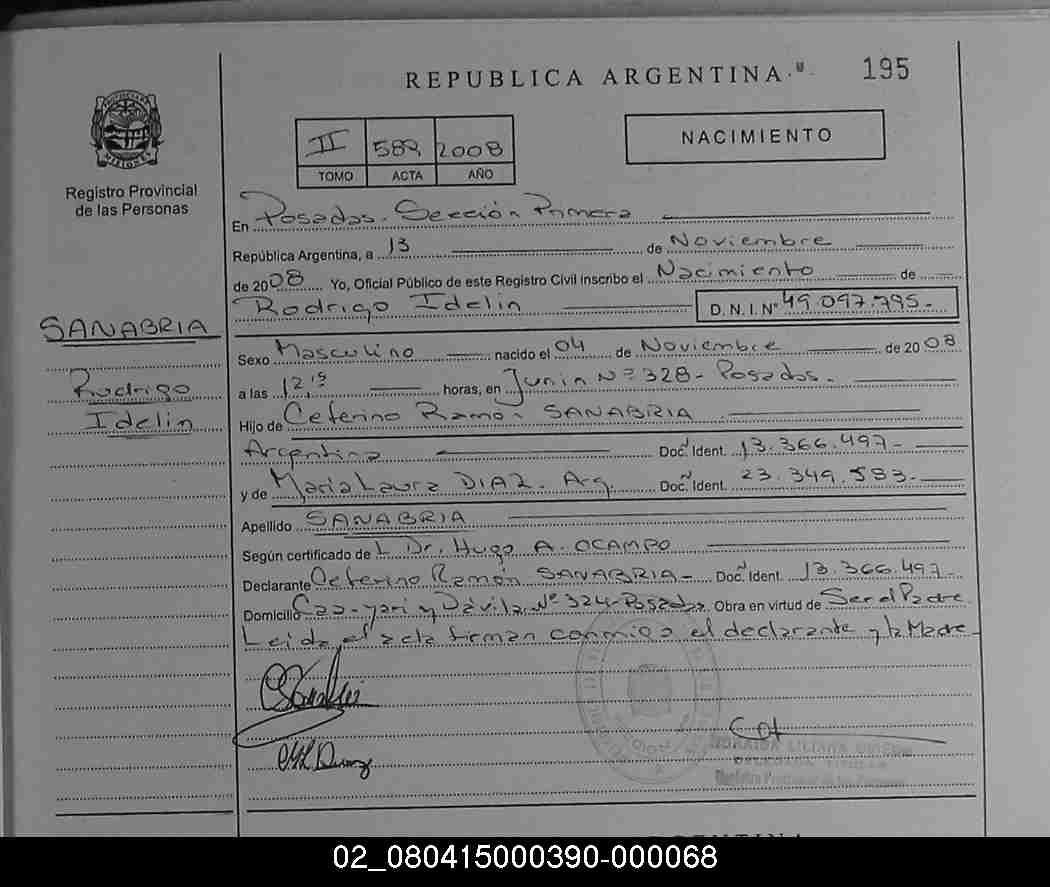 REPUBLICA ARGENTINA
195
II 589 2008
TOMO ACTA AÑO
NACIMIENTO
PROVINCIA DE MISIONES
Registro Provincial
de las Personas
En Posadas. Sección Primera
República Argentina, a 13 de Noviembre
de 2008 Yo, Oficial Público de este Registro Civil inscribo el Nacimiento de
Rodrigo Idelin D.N.I.Nº 49.097.795.-
SANABRIA
Rodrigo
Idelin
Sexo Masculino nacido el 04 de Noviembre de 2008
a las 12,15 horas, en Junin Nº 328- Posadas.
Hijo de Ceferino Ramón SANABRIA
Argentina Doc. Ident. 13.366.497-
y de Maria Laura DIAZ. Arg. Doc. Ident. 23.349.583.-
Apellido SANABRIA
Según certificado de L Dr. Hugo A. OCAMPO
Declarante Ceferino Ramón SANABRIA- Doc. Ident. 13.366.497-
Domicilio Caa-yari y Dávila Nº 324-Posadas Obra en virtud de Ser el Padre
Leida el acta firman conmigo el declarante y la Madre
LILIANA
DELEGADA TITULAR
Registro Provincial de las Personas
02_080415000390-000068